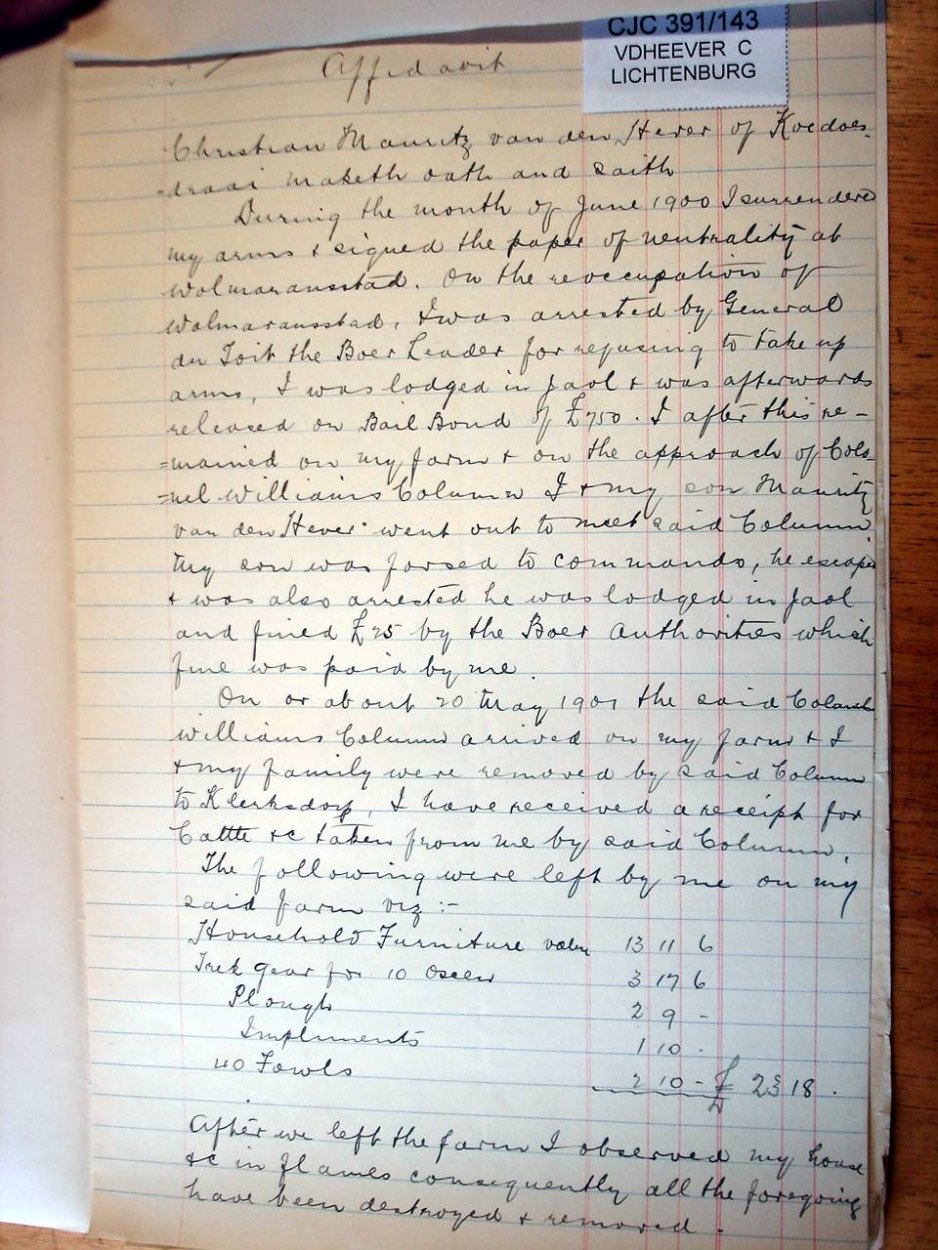 CJC 391/143
VDHEEVER C
LICHTENBURG
Affidavit
Christian Mauritz van den Hever of Koedoes-
-draai maketh oath and saith
During the month of June 1900 I surrendered
my arms & signed the paper of neutrality at
Wolmaransstad. On the reoccupation of
Wolmaransstad, I was arrested by General
du Toit the Boer Leader for refusing to take up
arms, I was lodged in Jaol & was afterwards
released on Bail Bond of £750. I after this re-
=mained on my farm & on the approach of Colo-
=nel Williams Column I & my son Mauritz
van den Hever went out to meet said Column
My son was forsed to commando, he escaped
& was also arrested he was lodged in Jaol
and fined £25 by the Boer Authorities which
fine was paid by me.
On or about 20 May 1901 the said Colonel
Williams Column arrived on my farm & I
& my family were removed by said Column
to Klerksdorp, I have received a receipt for
Cattle &c taken from me by said Column,
The following were left by me on my
said farm viz :-
Household Furniture value 13 11 6
Trek gear for 10 Oxen 3 17 6
Plough 2 9 -
Implements 1 10 -
40 Fowls 2 10 - £ 23 18 .
After we left the farm I observed my house
&c in flames consequently all the foregoing
have been destroyed & removed .